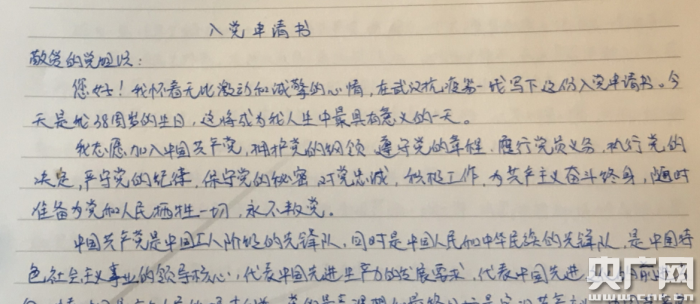 入党申请书
敬爱的党组织：
您好！我怀着无比激动和诚挚的心情，在武汉抗疫第一线写下这份入党申请书。今
天是我38周岁的生日，这将成为我人生中最具有意义的一天。
我志愿加入中国共产党，拥护党的纲领，遵守党的章程，履行党员义务，执行党的
决定，严守党的纪律，保守党的秘密，对党忠诚，积极工作，为共产主义奋斗终身，随时
准备为党和人民牺牲一切，永不叛党。
中国共产党是中国工人阶级的先锋队，同时是中国人民和中华民族的先锋队，是中国特
色社会主义事业的领导核心，代表中国先进生产力的发展要求，代表中国先进
央广网
www.cnr.cn